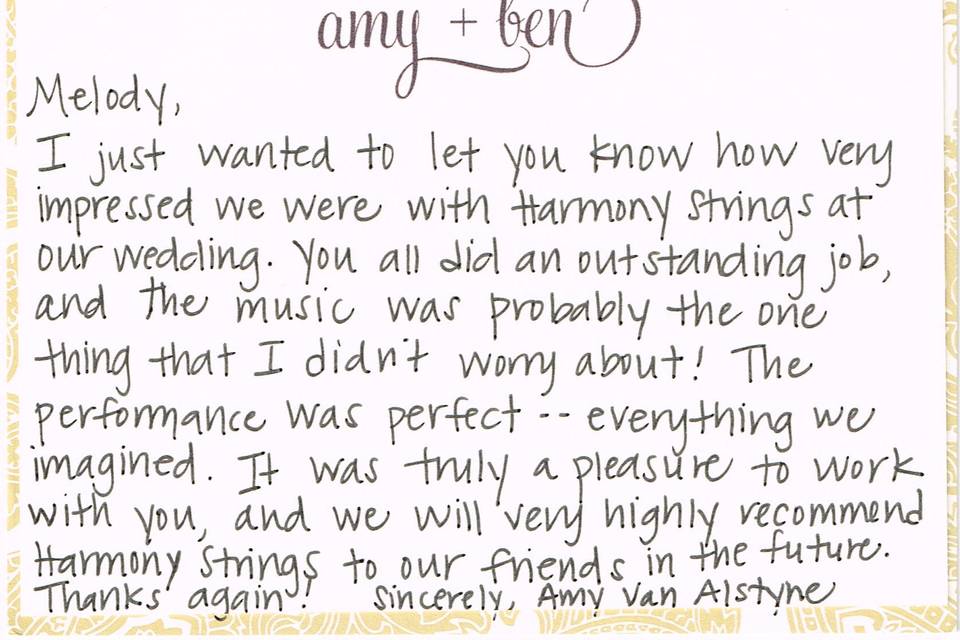 amy + ben
Melody,
I just wanted to let you know how very
impressed we were with Harmony Strings at
our wedding. You all did an outstanding job,
and the music was probably the one
thing that I didn't worry about! The
performance was perfect -- everything we
imagined. It was truly a pleasure to work
with you, and we will very highly recommend
Harmony Strings to our friends in the future.
Thanks again! Sincerely, Amy Van Alstyne